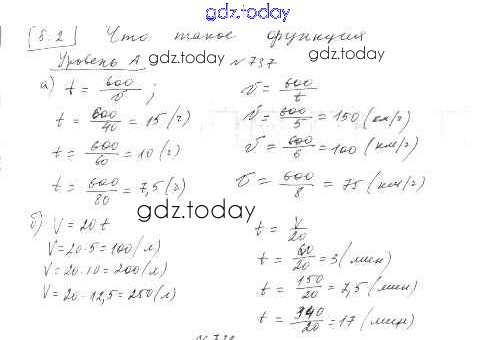 gdz.today
5.2 Что такое функция
Уровень А gdz.today №737
а) t = 600/v; v = 600/t
t = 600/40 = 15 (ч) v = 600/5 = 150 (км/ч)
t = 600/60 = 10 (ч) v = 600/6 = 100 (км/ч)
t = 600/80 = 7,5 (ч) v = 600/8 = 75 (км/ч)
gdz.today
б) V = 20t t = V/20
V = 20·5 = 100 (л) t = 60/20 = 3 (мин)
V = 20·10 = 200 (л) t = 150/20 = 7,5 (мин)
V = 20·12,5 = 250 (л) t = 340/20 = 17 (мин)
gdz.today